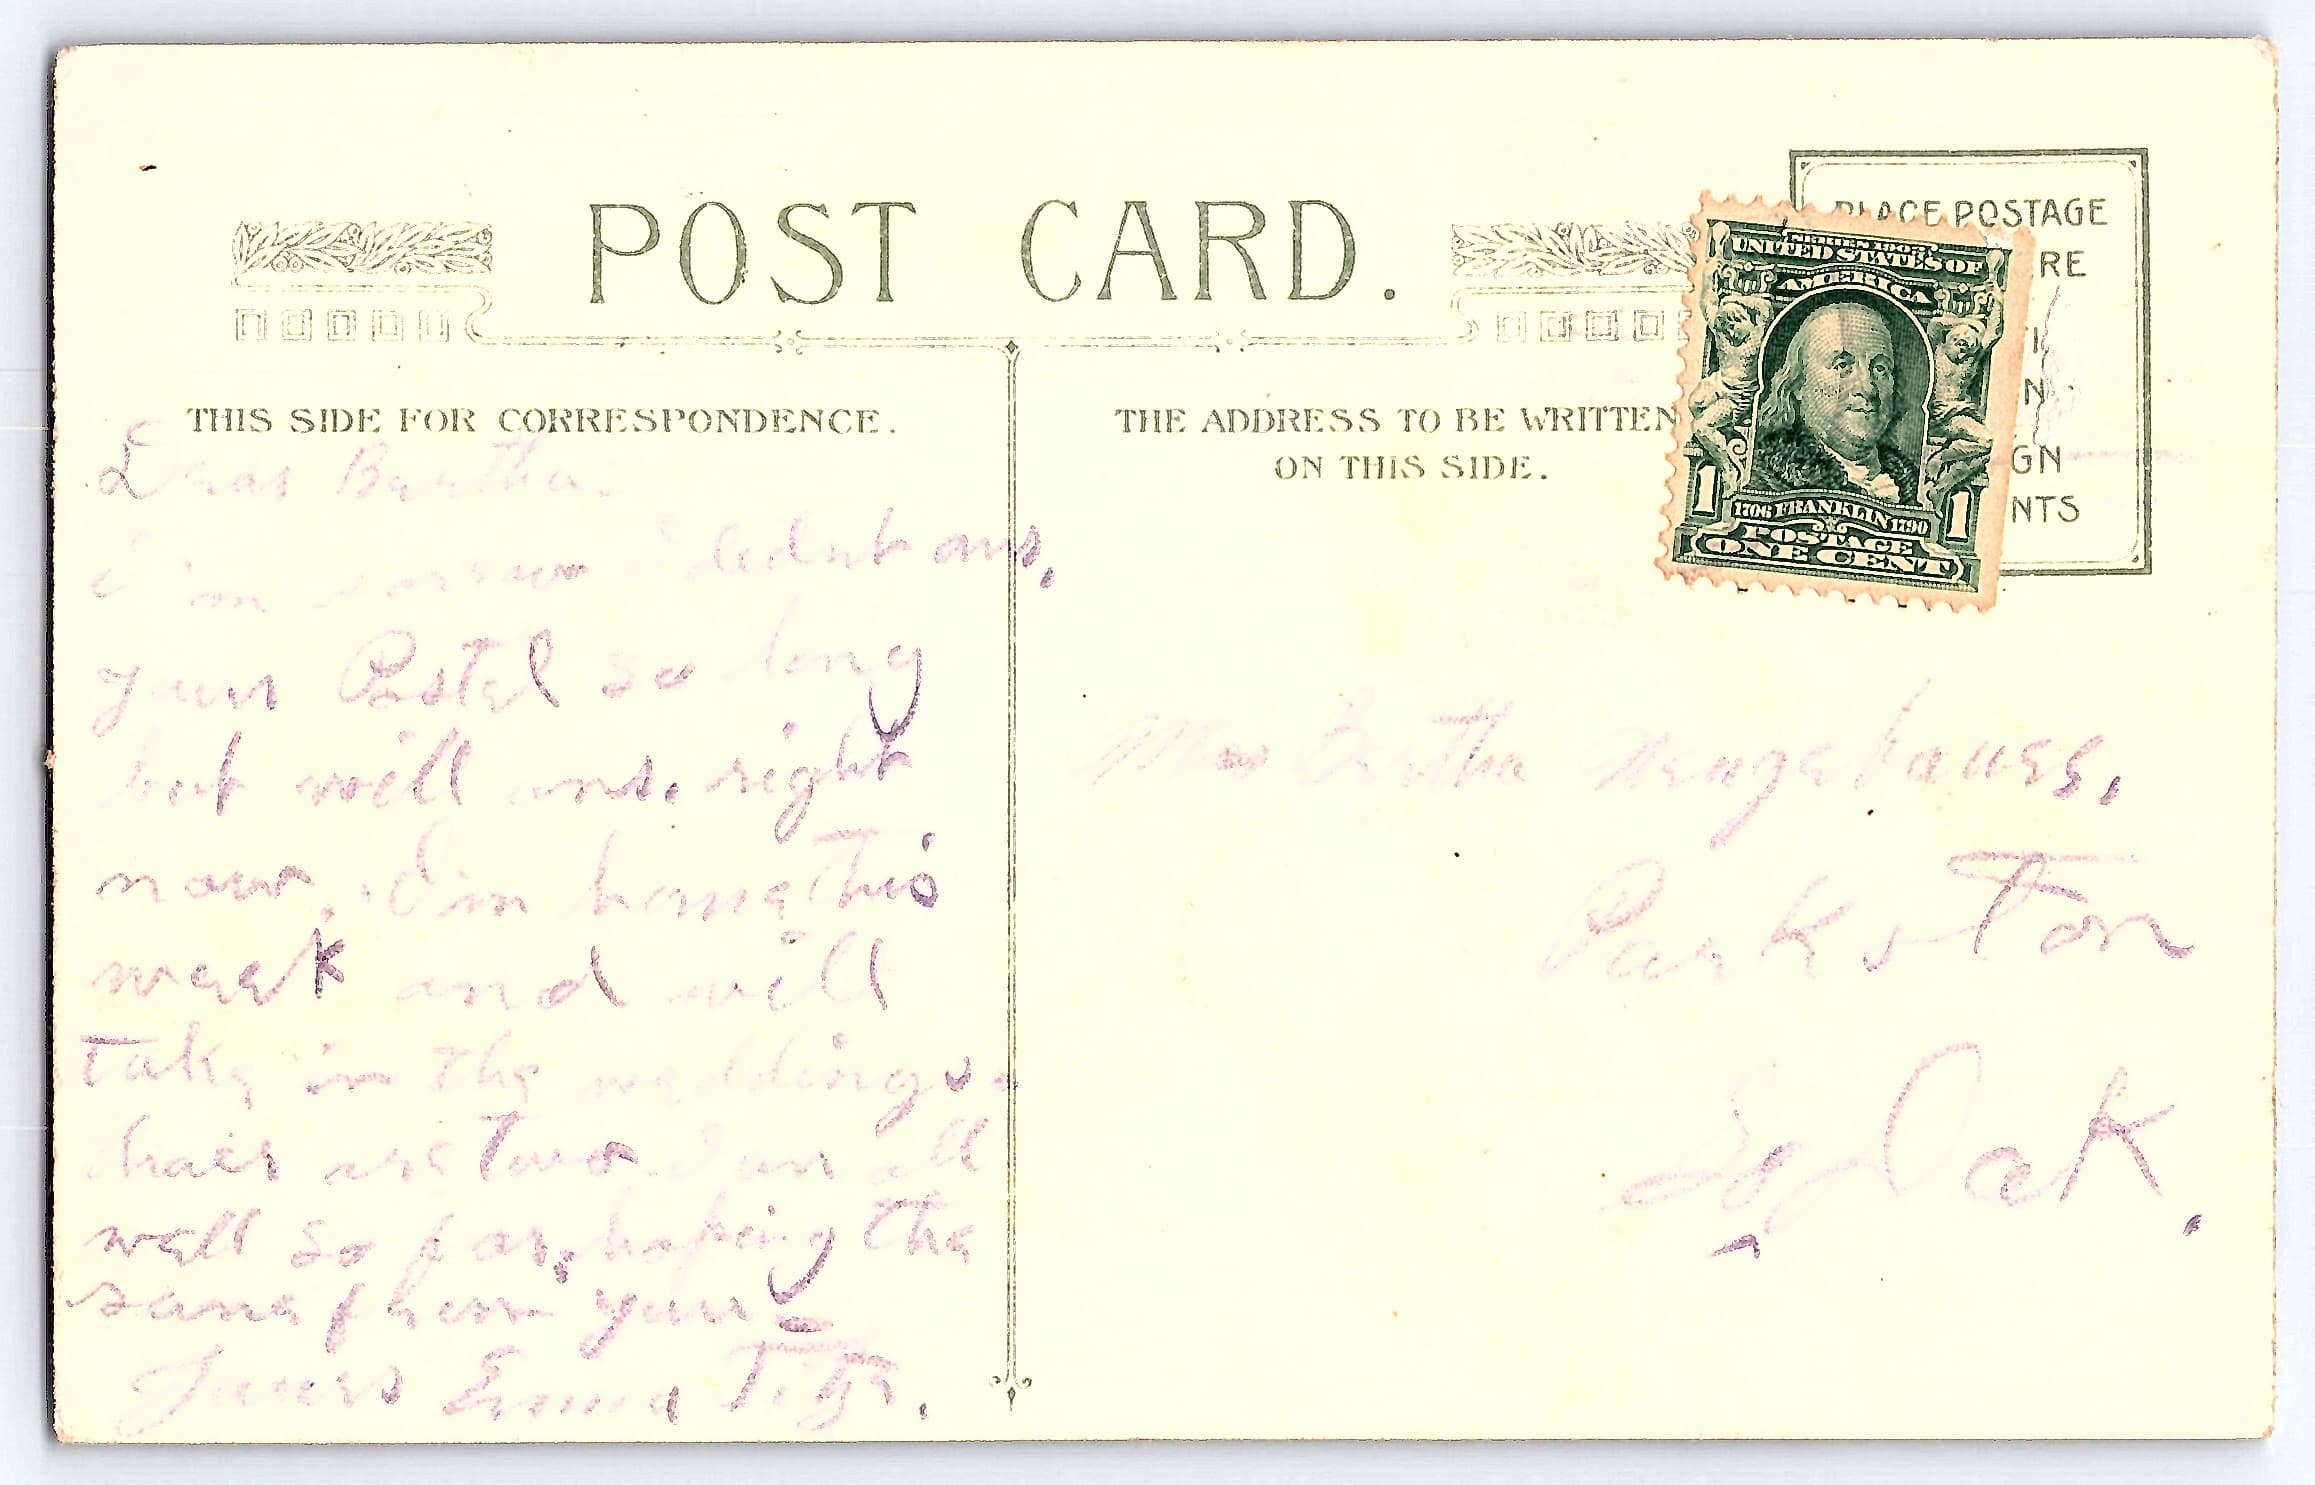 POST CARD.
PLACE POSTAGE
RE
N
GN
NTS
SERIES 1902
UNITED STATES OF
AMERICA
1706 FRANKLIN 1790
1 1
POSTAGE
ONE CENT
THIS SIDE FOR CORRESPONDENCE.
THE ADDRESS TO BE WRITTEN
ON THIS SIDE.
Dear Bertha.
I'm sorrow I didnt ans.
your Postel so long
but will ans. right
now. I'm home this
week and will
take in the weddings
are two I'm all
well so far, hoping the
same from you
Yours Emma
Bertha
Parkston
So Dak.